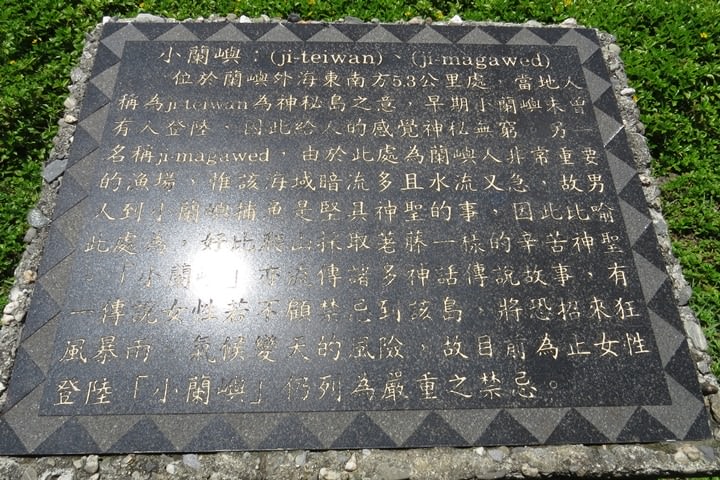 小蘭嶼：(ji-teiwan)、(ji-magawed)
位於蘭嶼外海東南方5.3公里處，當地人
稱為ji-teiwan為神秘島之意，早期小蘭嶼未曾
有人登陸，因此給人的感覺神秘無窮。另一
名稱ji-magawed，由於此處為蘭嶼人非常重要
的漁場，惟該海域暗流多且水流又急，故男
人到小蘭嶼捕魚是堅具神聖的事，因此比喻
此處為，好比 山採取荖藤一樣的辛苦神聖
「小蘭嶼」亦流傳諸多神話傳說故事，有
一傳說女性若不顧禁忌到該島，將恐招來狂
風暴雨 氣候變天的風險，故目前為止女性
登陸「小蘭嶼」仍列為嚴重之禁忌。